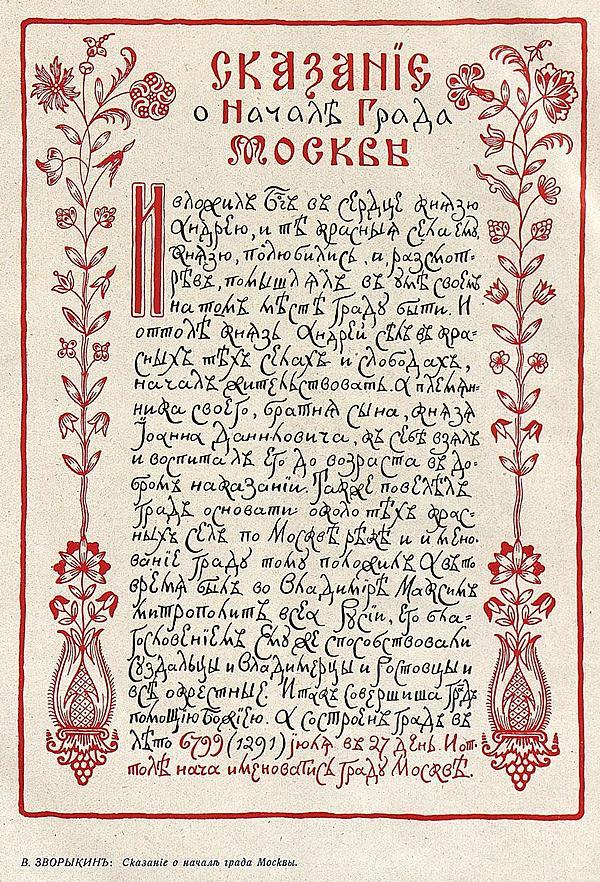 СКАЗАНІЕ
о Началѣ Града
МОСКВЫ
И вложилъ Бг҃ъ въ сердце князю
Андрею, и тѣ красныя села ему,
князю, полюбились, и, разсмот-
рѣвъ, помышлялъ въ умѣ своемъ
на томъ мѣстѣ Граду быти. И
оттолѣ князь Андрей сѣлъ въ кра-
сныхъ тѣхъ селахъ и слободахъ,
началъ жительствовать. А племян-
ника своего, братня сына, князя
Іоанна Даниловича, къ себѣ взялъ
и воспиталъ Его до возраста въ до-
бромъ наказаніи. Также повелѣлъ
Градъ основати около тѣхъ крас-
ныхъ селъ по Москвѣ рѣкѣ и имено-
ваніе Граду тому положилъ. А въ то
время былъ во Владимірѣ Максимъ
митрополитъ всея Русіи, Его бла-
гословеніемъ. Ему же способствовали
Суздальцы и Владимерцы и Ростовцы и
всѣ окрестные. И такъ совершиша Градъ
помощію Божіею. А состроенъ Градъ въ
лѣто 6799 (1291) іюля въ 27 день. И от-
толѣ нача именоватись Граду Москвѣ.
В. ЗВОРЫКИНЪ: Сказаніе о началѣ града Москвы.